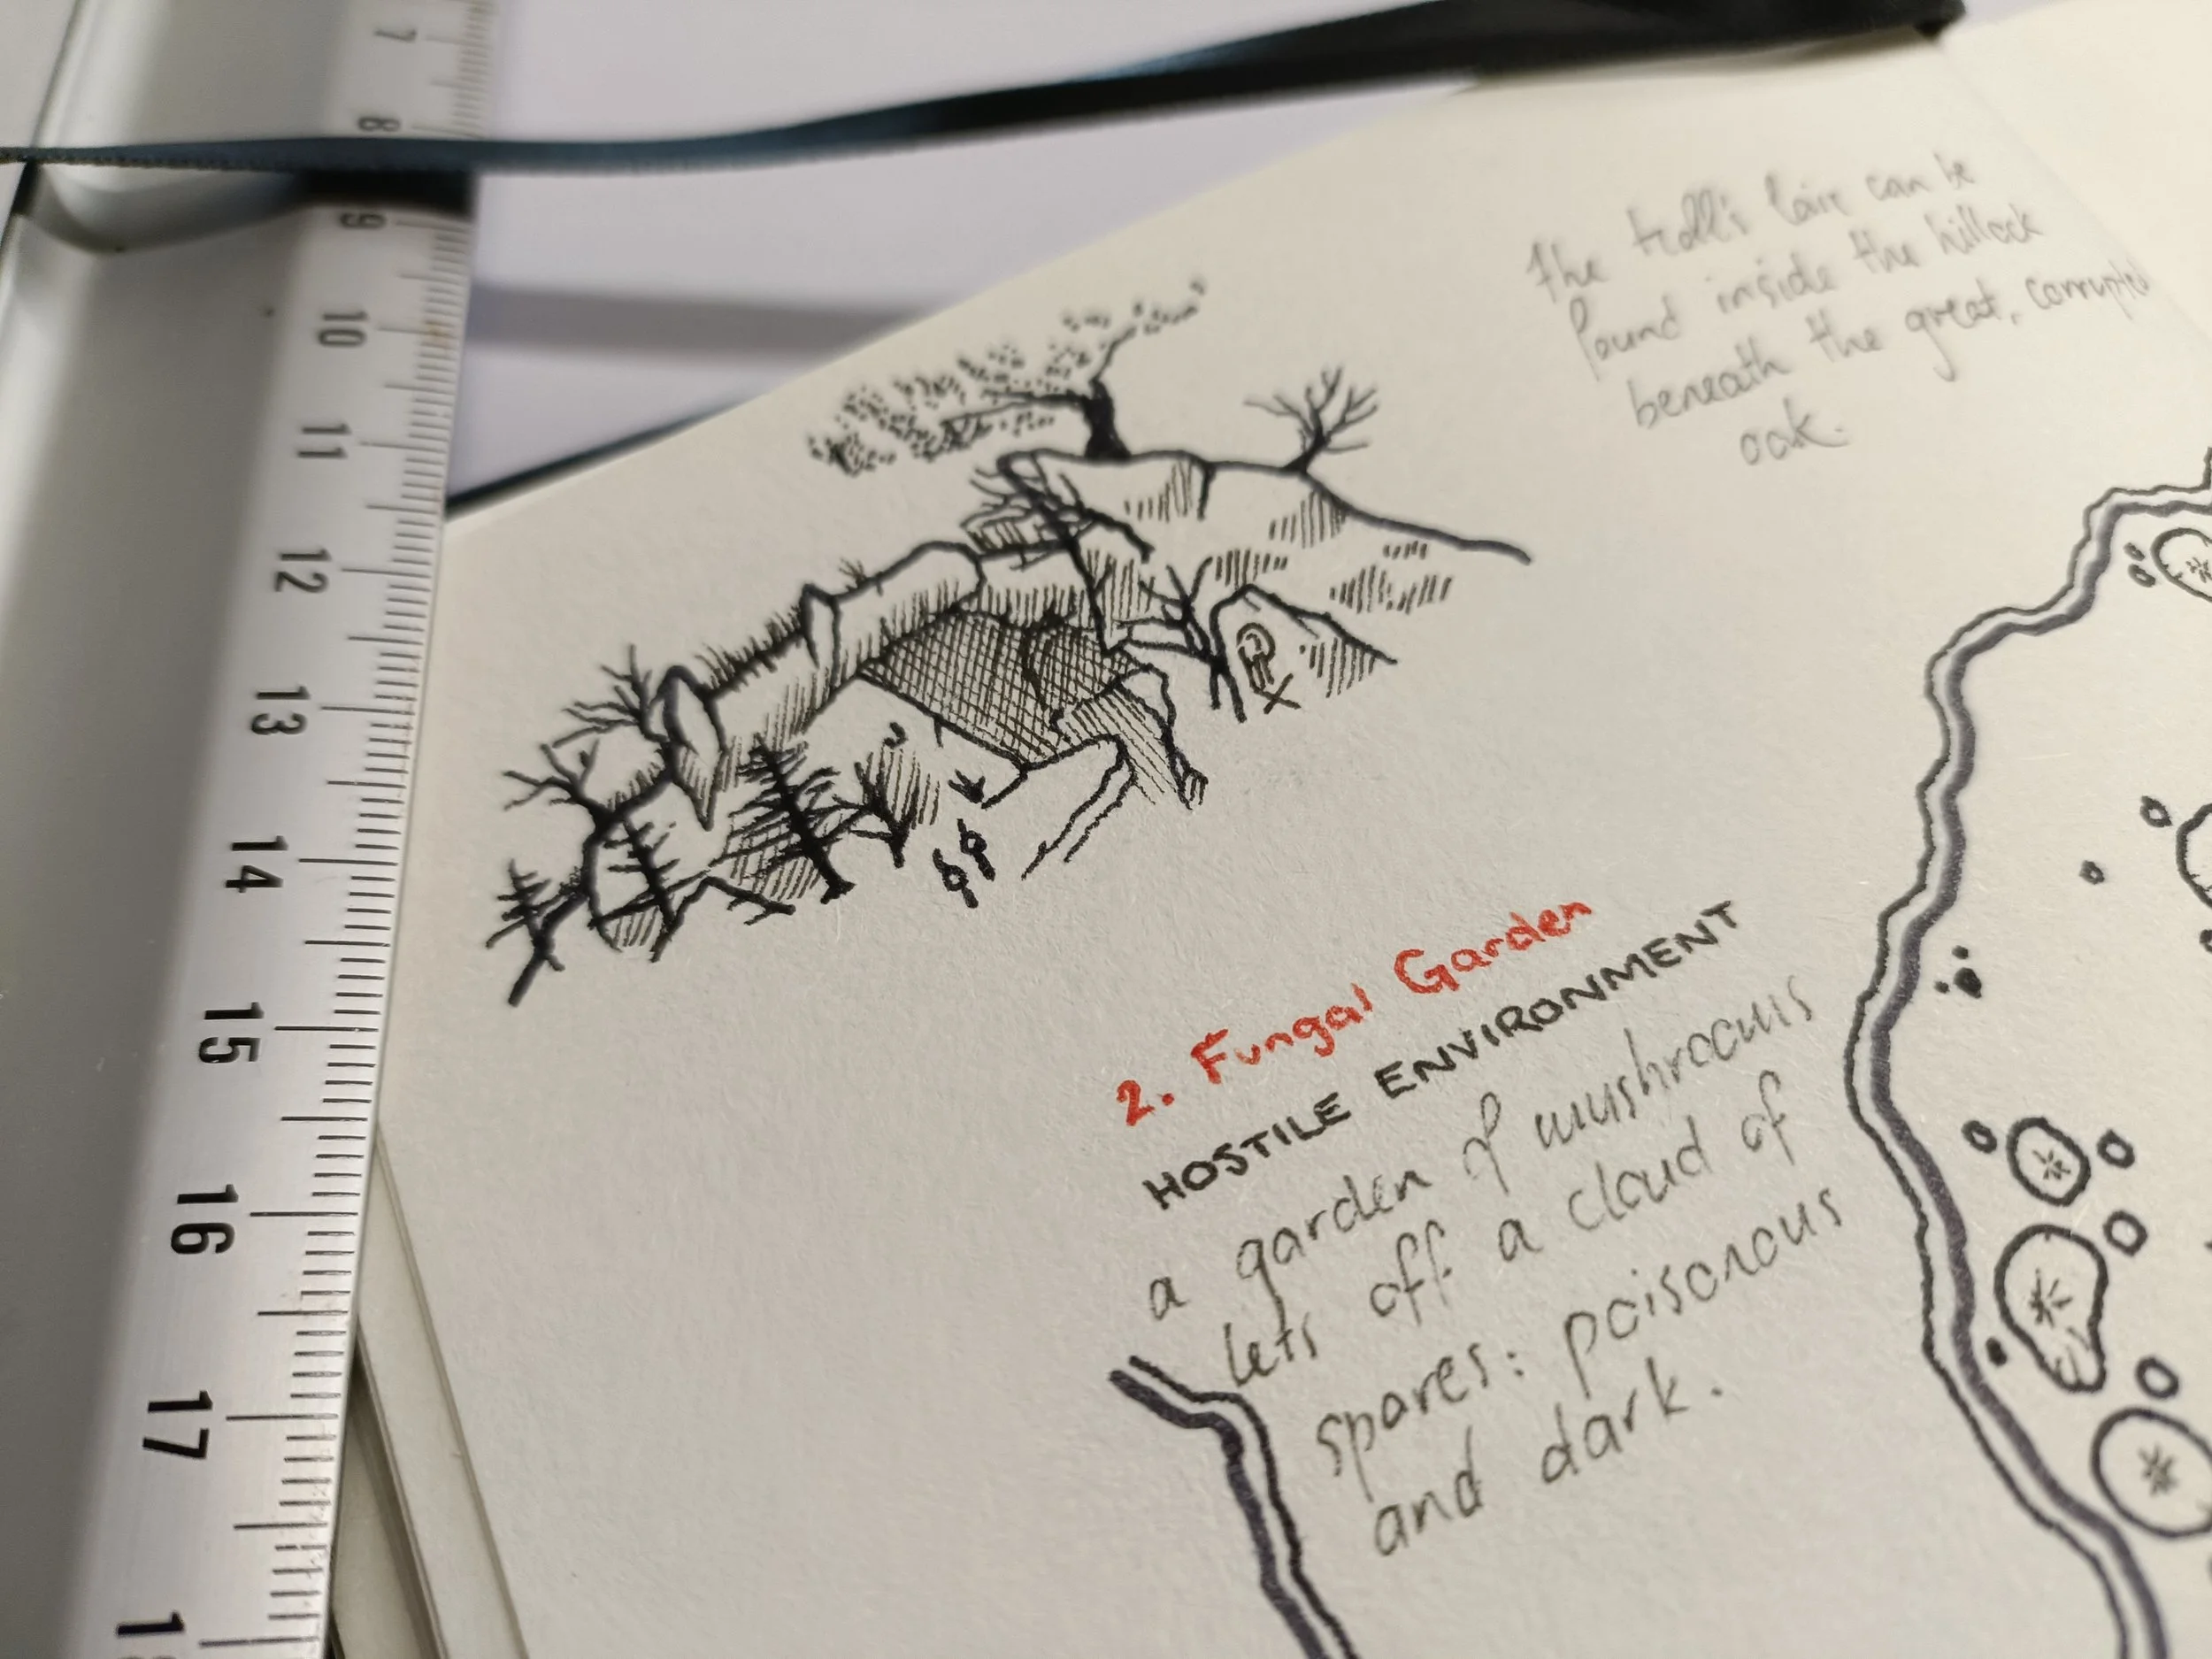 7
8
9
10
11
12
13
14
15
16
17
18
The troll's lair can be
found inside the hillock
beneath the great, corrupted
oak.
2. Fungal Garden
HOSTILE ENVIRONMENT
a garden of mushrooms
lets off a cloud of
spores: poisonous
and dark.